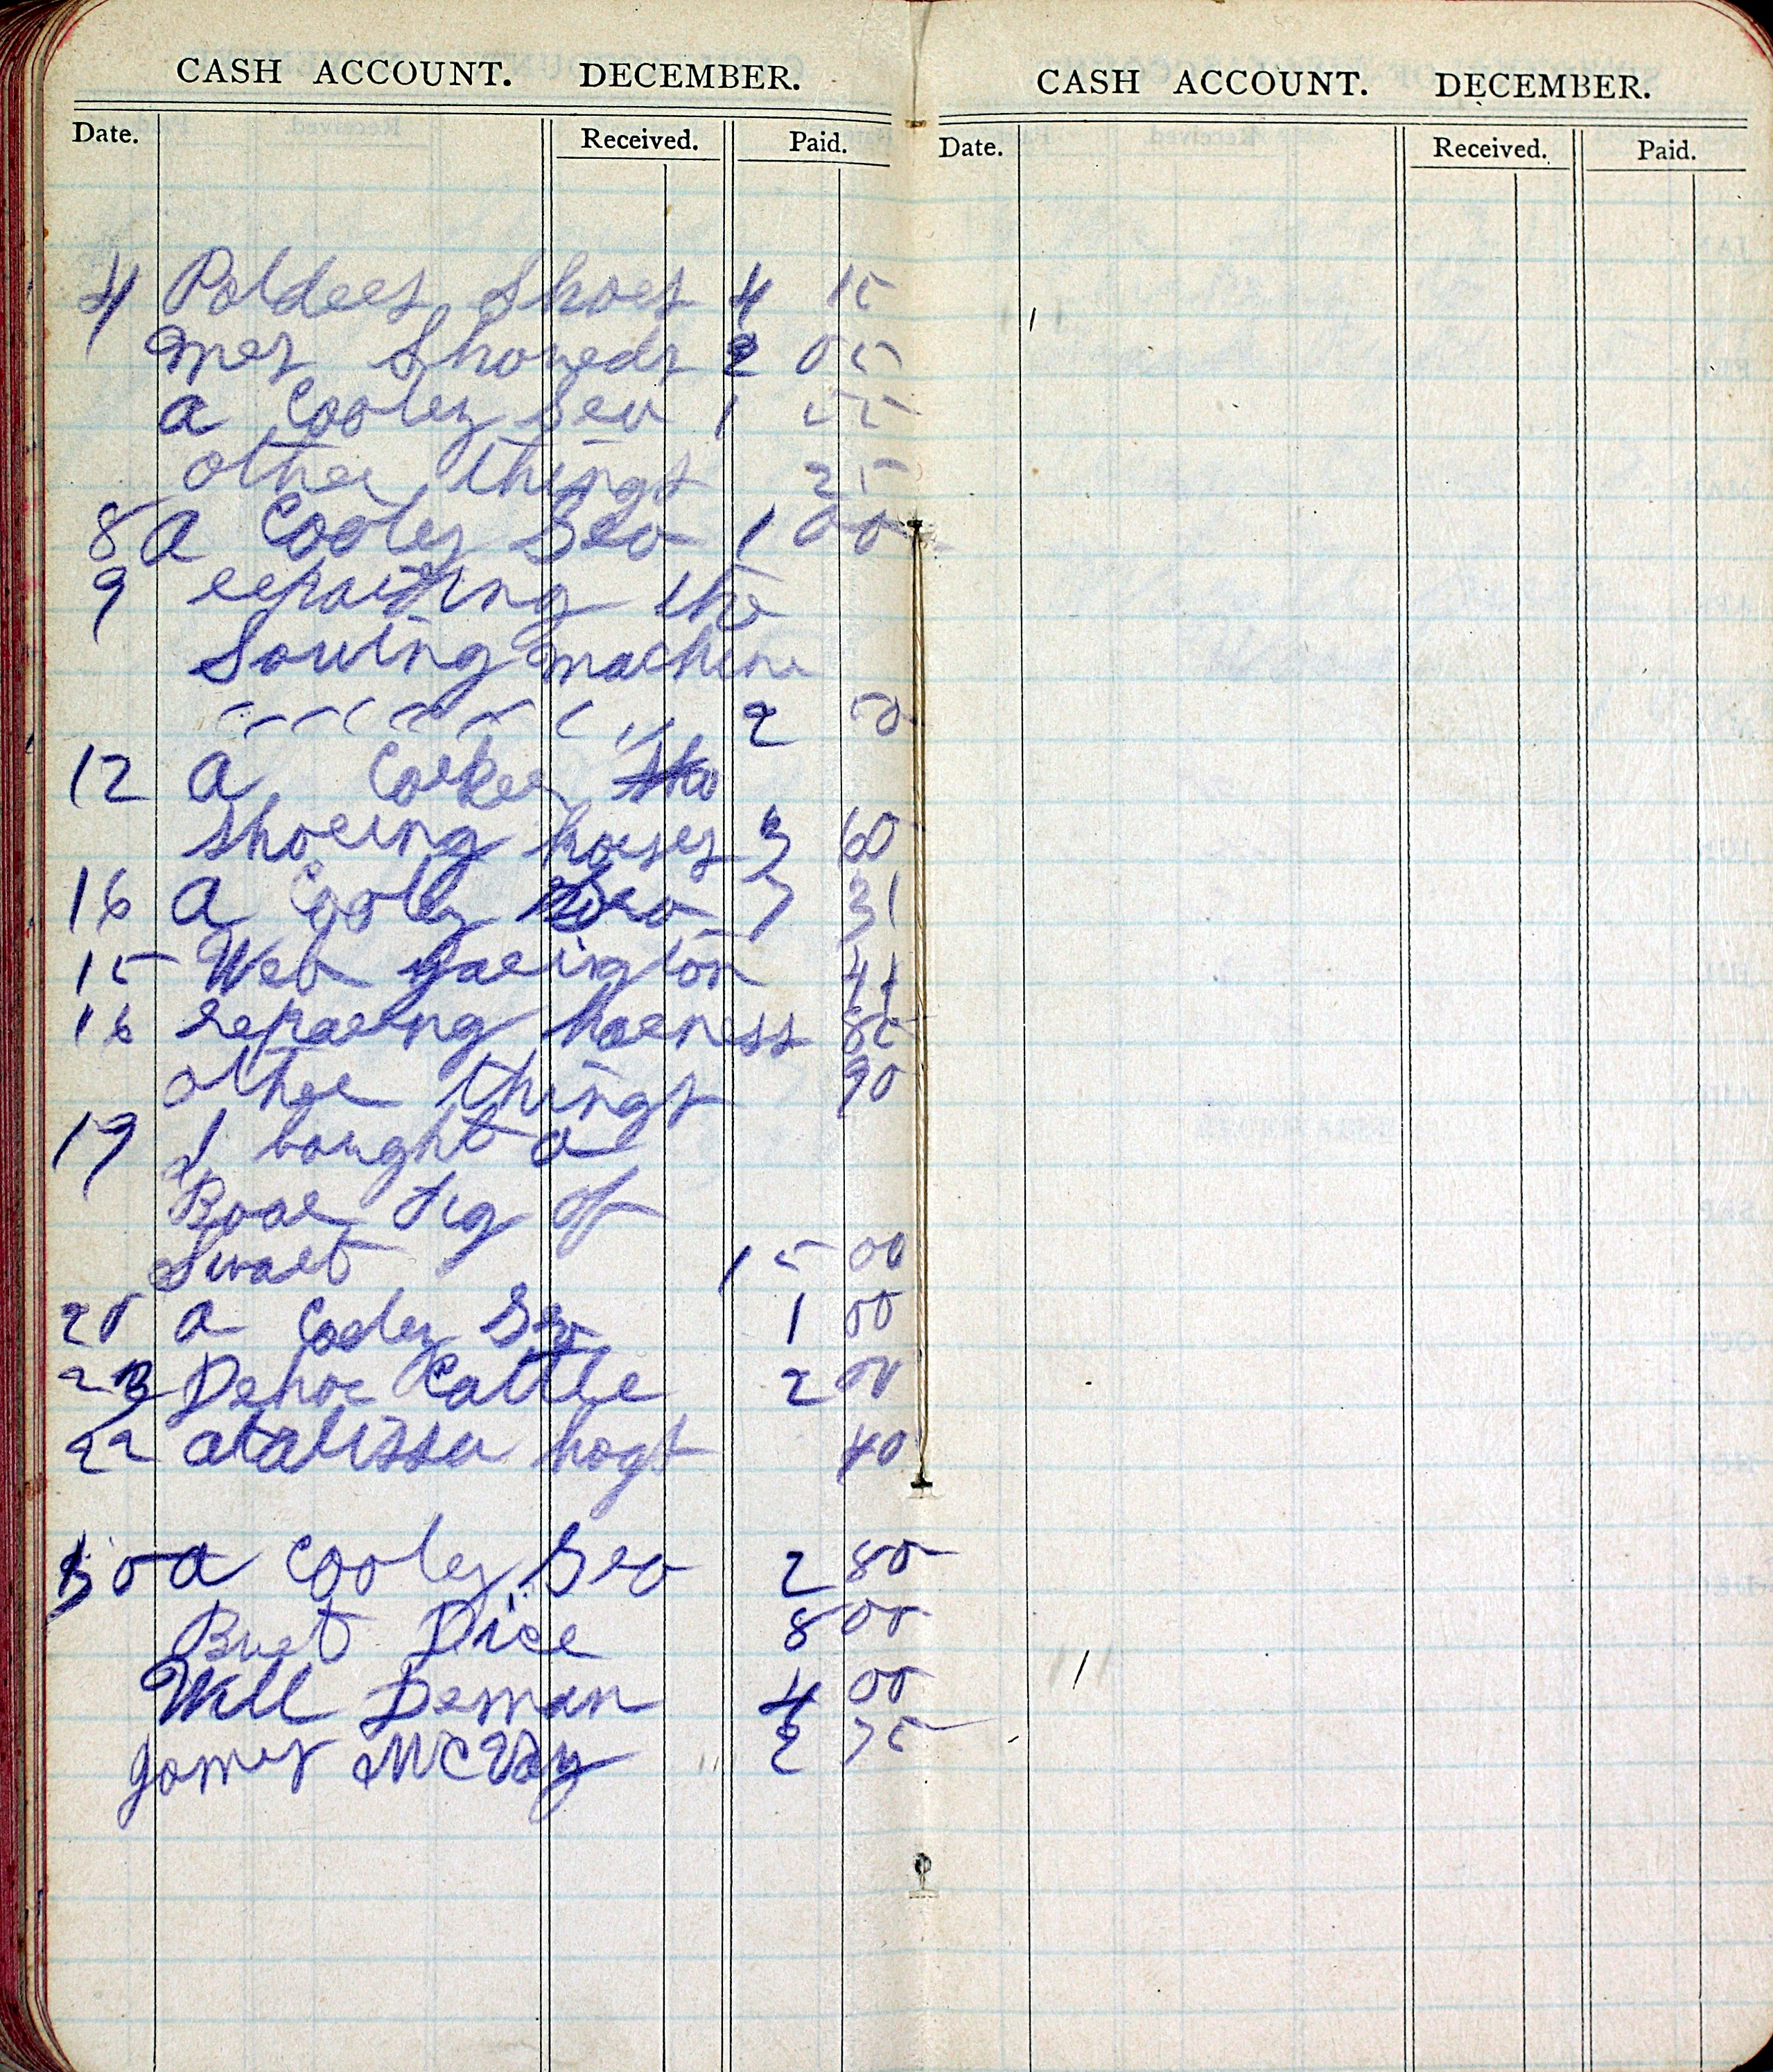 CASH ACCOUNT. DECEMBER.
Date. Received. Paid.
4 Poldees Shoes 4 15
mes Showeds 2 05
a Cooley Seo 1 55
other things 25
8 a Cooley Seo 1 00
9 repairing the
Sowing machine
2 50
12 a Corker
shoeing horses 3 60
16 a Cooley Seo 7 31
15 Web Yarington
16 repaeing harness 85
other things 90
19 I bought a
Boar Pig of
Swart 15 00
20 a Cooley Seo 1 00
23 Dehor Cattle 2 00
22 atalissa hogs 40
30 a Cooley Seo 2 80
Burt Dice 8 00
Will Deman 4 00
James McVay 2 75
CASH ACCOUNT. DECEMBER.
Date. Received. Paid.